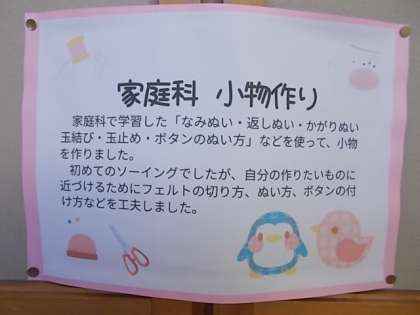 家庭科 小物作り
家庭科で学習した「なみぬい・返しぬい・かがりぬい
玉結び・玉止め・ボタンのぬい方」などを使って、小物
を作りました。
初めてのソーイングでしたが、自分の作りたいものに
近づけるためにフェルトの切り方、ぬい方、ボタンの付
け方などを工夫しました。